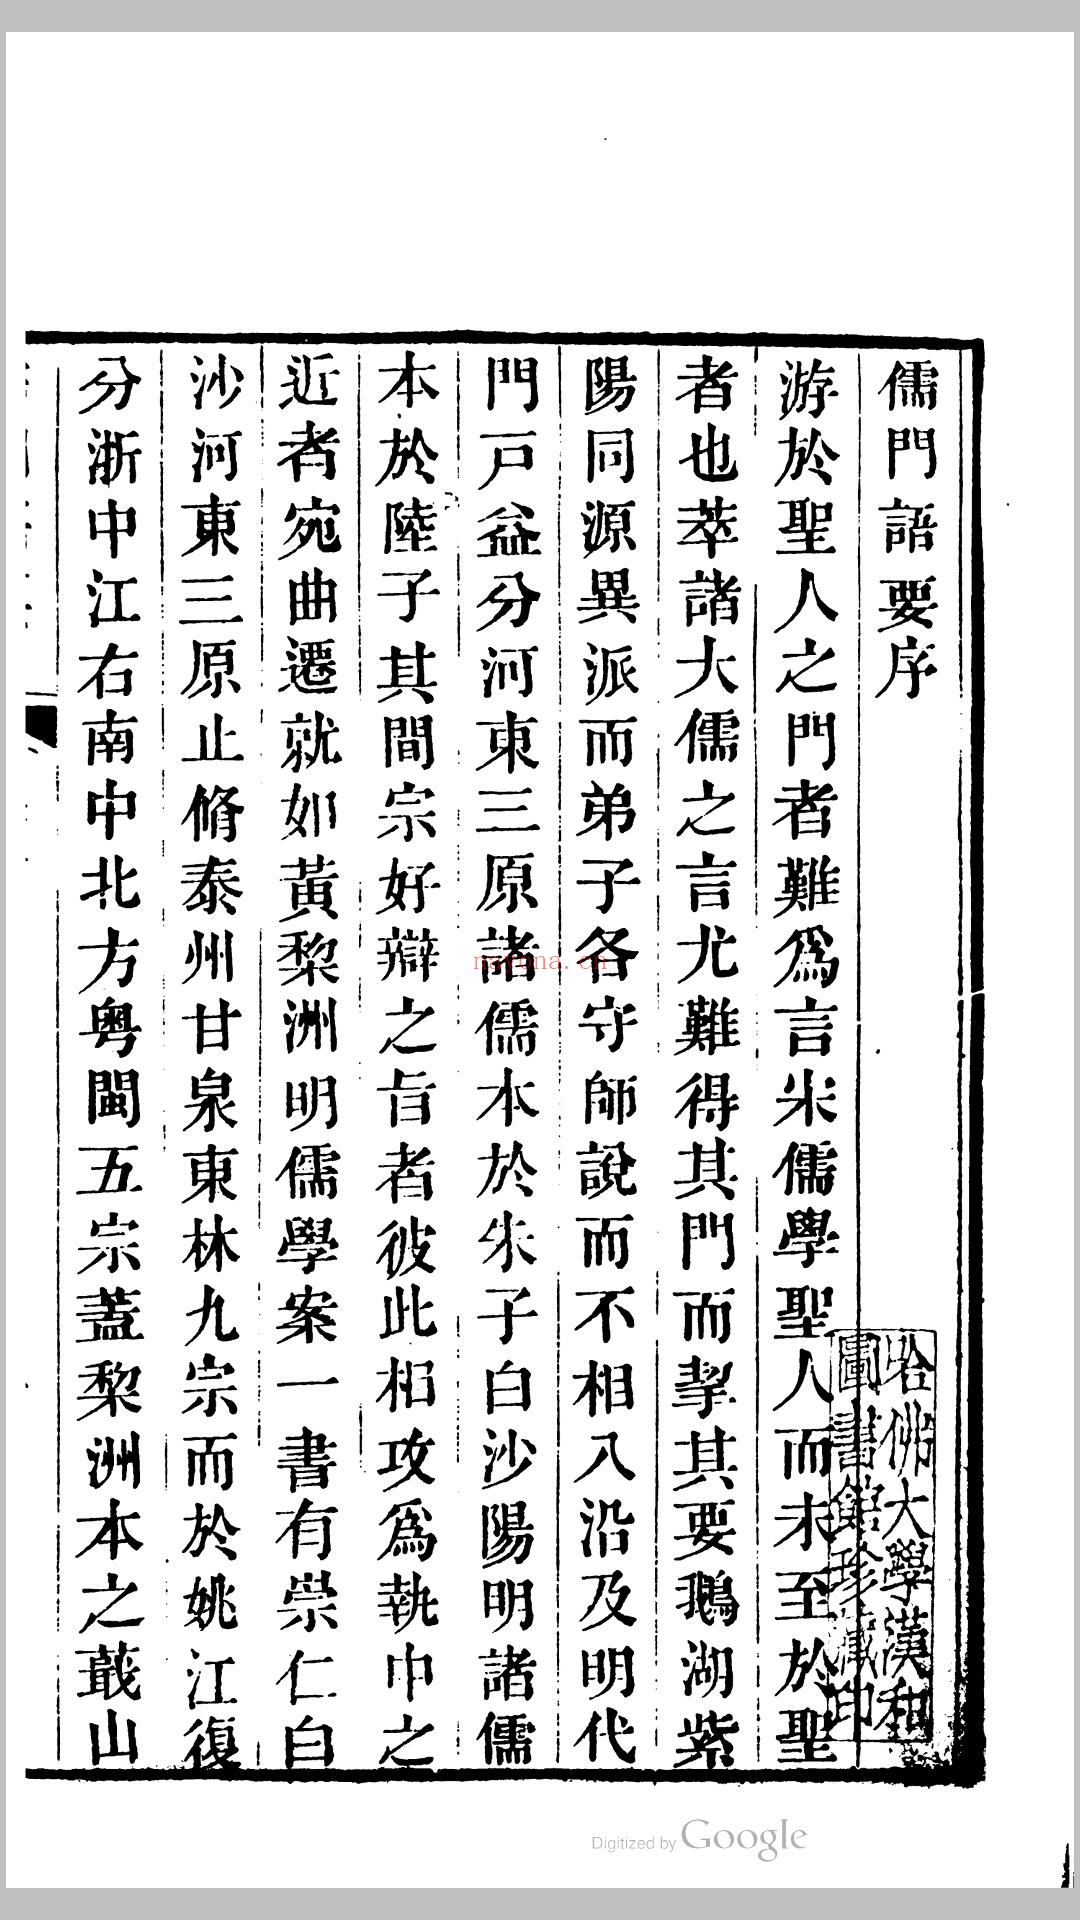 儒門語要序
游於聖人之門者難爲言朱儒學聖人而未至於聖
者也萃諸大儒之言尤難得其門而挈其要鵝湖紫
陽同源異派而弟子各守師說而不相入沿及明代
門戸益分河東三原諸儒本於朱子白沙陽明諸儒
本於陸子其間宗好辯之旨者彼此相攻爲執中之
近者宛曲遷就如黃棃洲明儒學案一書有崇仁白
沙河東三原止脩泰州甘泉東林九宗而於姚江復
分浙中江右南中北方粤閩五宗蓋棃洲本之蕺山
哈佛大學漢和
圖書館珍藏印
nayona.cn
Digitized by Google